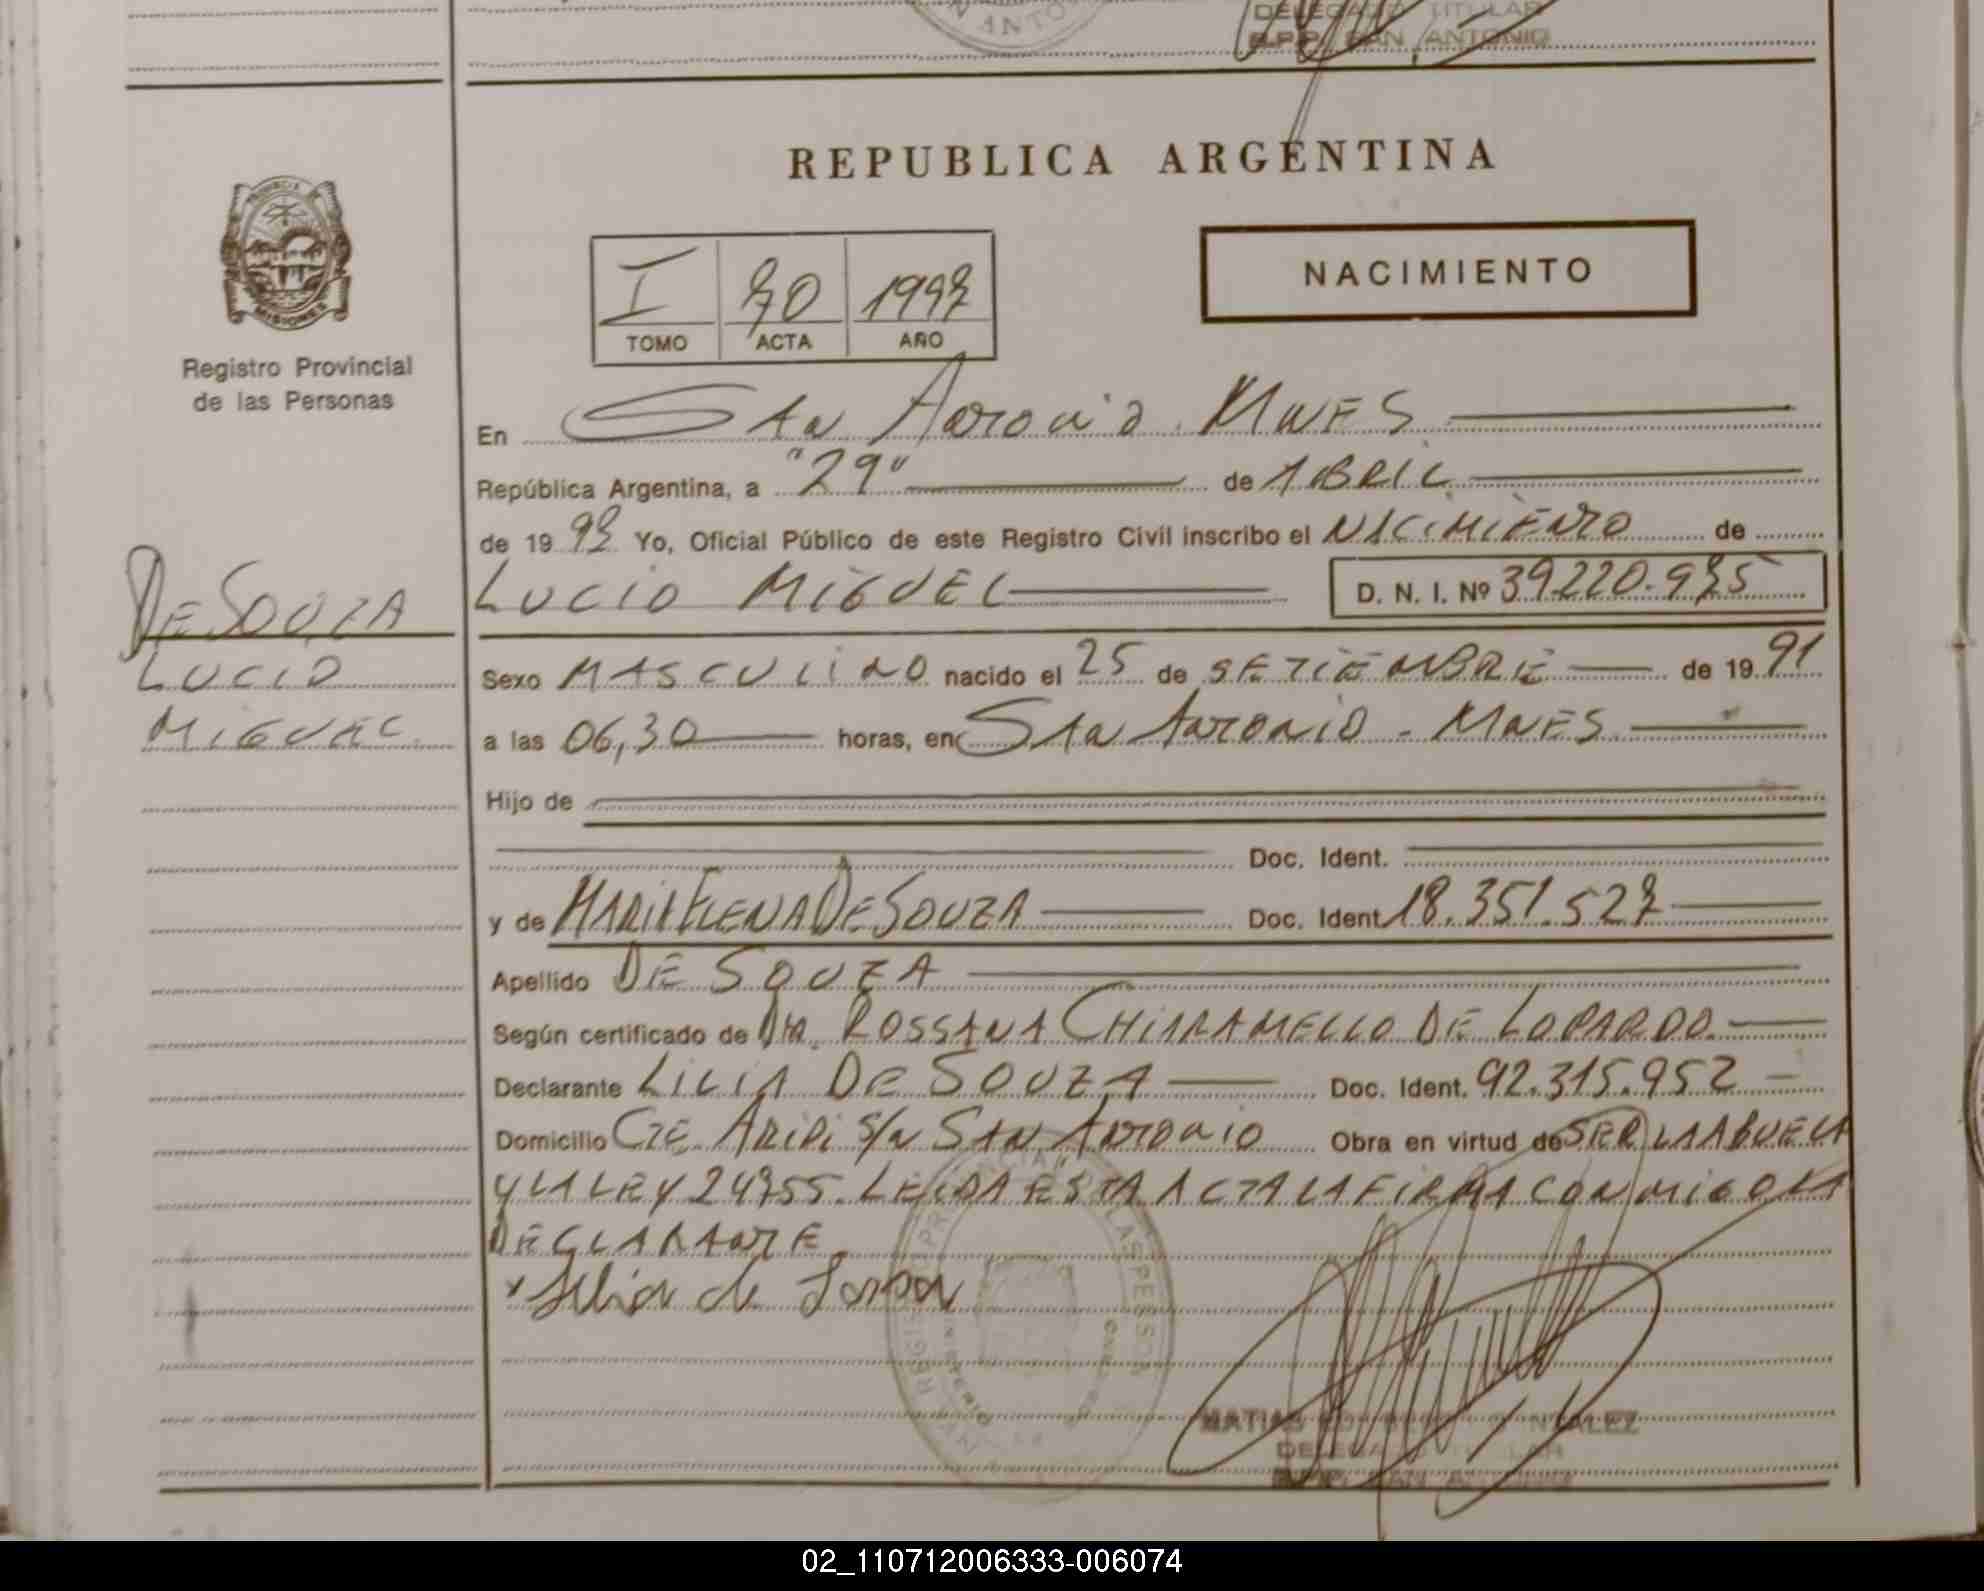 DELEGADO TITULAR
R.P.P. SAN ANTONIO
REPUBLICA ARGENTINA
NACIMIENTO
I 70 1997
TOMO ACTA AÑO
PROVINCIA
MISIONES
Registro Provincial
de las Personas
En SAN ANTONIO. MNES
República Argentina, a "29" de ABRIL
de 19 97 Yo, Oficial Público de este Registro Civil inscribo el NACIMIENTO de
LUCIO MIGUEL D. N. I. Nº 39.220.975
DE SOUZA
LUCIO
MIGUEL
Sexo MASCULINO nacido el 25 de SETIEMBRE de 19 91
a las 06,30 horas, en SAN ANTONIO - MNES
Hijo de
Doc. Ident.
y de MARIA ELENA DE SOUZA Doc. Ident. 18.351.527
Apellido DE SOUZA
Según certificado de Dra. ROSSANA CHIARAMELLO DE LOPARDO
Declarante LILIA DE SOUZA Doc. Ident. 92.315.952
Domicilio CTE. ARIPI S/N SAN ANTONIO Obra en virtud de SER LA ABUELA
Y LA LEY 24755. LEIDA ESTA ACTA LA FIRMA CONMIGO LA
DECLARANTE.
DELEGADO TITULAR
R.P.P. SAN ANTONIO
02_110712006333-006074